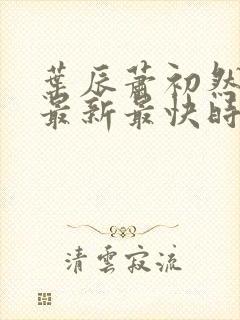 葉辰蕭初然
最新最快時
清雲寂流